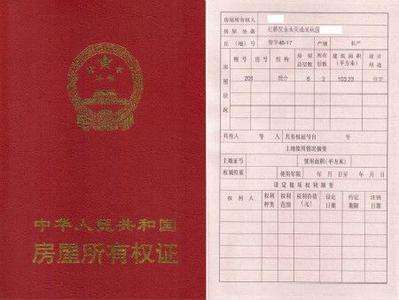 中华人民共和国
房屋所有权证
房屋所有权人
房屋坐落
丘（地）号 产别
幢号 房号 结构 房屋总层数 所在层数 建筑面积（平方米） 设计用途
房屋状况
201 混合 6 2 103.23 住宅
共有人 等 人 共有权证号自 至
土地使用情况摘要
土地证号 使用面积（平方米）
权属性质 使用年限 年 月 日至 年 月 日
设定他项权利摘要
权利人 权利种类 权利范围 权利价值（元） 设定日期 约定期限 注销日期